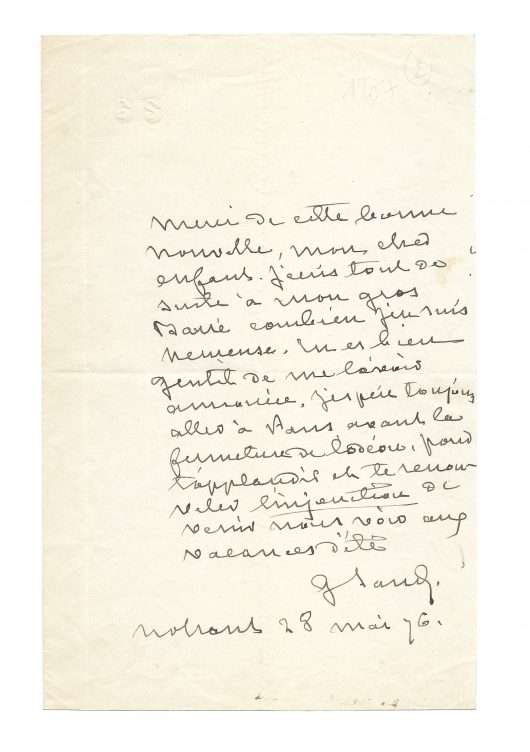 1207
Merci de cette bonne
nouvelle, mon cher
enfant. J'écris tout de
suite à mon gros
combien j'en suis
heureuse. Tu es bien
gentil de me l'avoir
annoncée, j'espère toujours
aller à Paris avant la
fermeture de l'odéon, pour
t'applaudir et te renou
veler l'injonction de
venir nous voir aux
vacances d'été
G Sand.
nohant 28 mai 76.